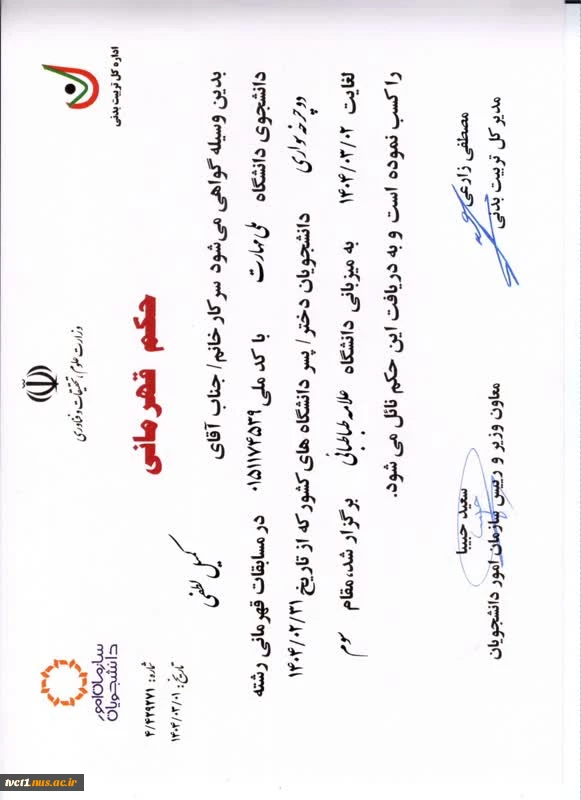 وزارت علوم، تحقیقات و فناوری
اداره کل تربیت بدنی
سازمان امور
دانشجویان
شماره: ۴/۴۲۹۲۷۱
تاریخ: ۱۴۰۴/۰۳/۰۱
حکم قهرمانی
بدین وسیله گواهی می‌شود سرکار خانم/ جناب آقای کمیل لطفی
دانشجوی دانشگاه ملی مهارت با کد ملی ۰۱۵۱۱۷۴۵۳۹ در مسابقات قهرمانی رشته
دوچرخه سواری دانشجویان دختر/ پسر دانشگاه های کشور که از تاریخ ۱۴۰۴/۰۲/۳۱
لغایت ۱۴۰۴/۰۳/۰۲ به میزبانی دانشگاه علامه طباطبائی برگزار شد، مقام سوم
را کسب نموده است و به دریافت این حکم نائل می شود.
مصطفی زارعی
مدیر کل تربیت بدنی
سعید حبیبا
معاون وزیر و رییس سازمان امور دانشجویان
tvct1.nus.ac.ir